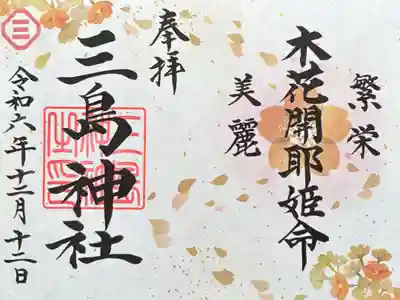 繁栄
木花開耶姫命
美麗
奉拝
三島神社
令和六年十二月十二日